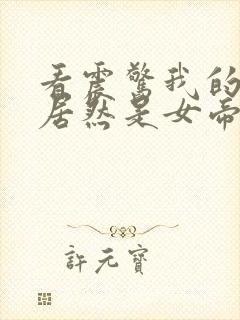 看震驚我的
居然是女帝
許元寶